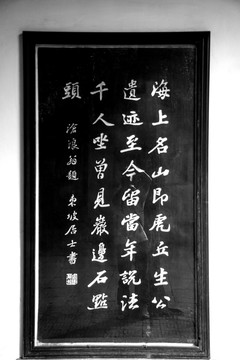 海上名山即虎丘生公
遺迹至今留當年說法
千人坐曾見巖邊石點
頭
滄浪翁題 東坡居士書